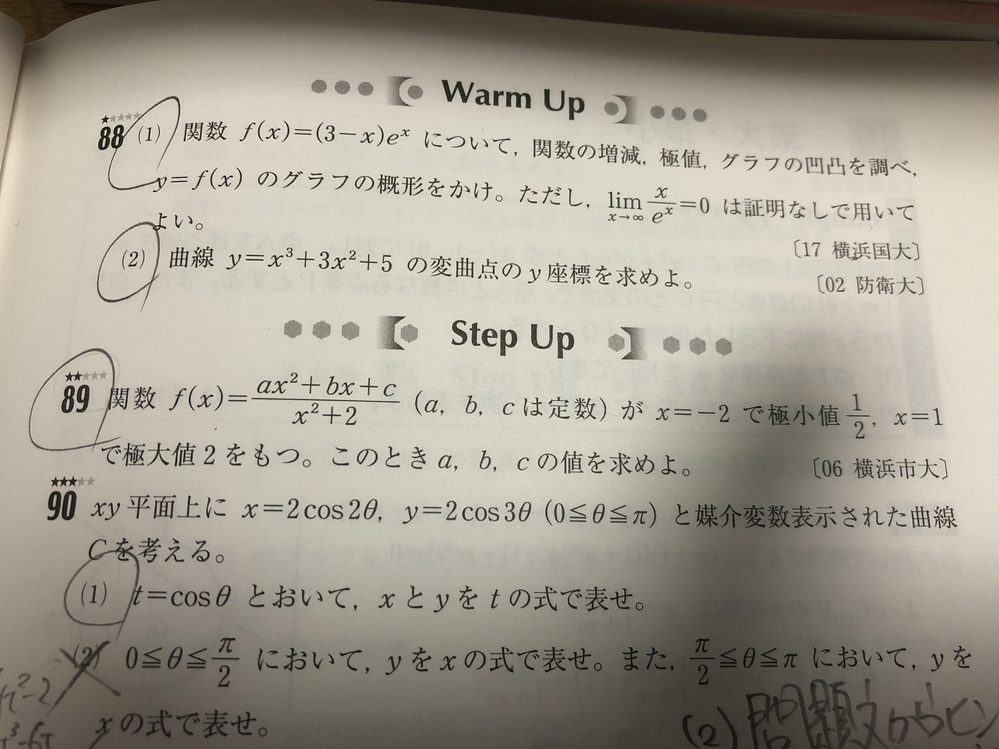 Warm Up
88 (1) 関数 f(x)=(3−x)eˣ について,関数の増減,極値,グラフの凹凸を調べ,
y=f(x) のグラフの概形をかけ。ただし,lim_{x→∞} x/eˣ=0 は証明なしで用いて
よい。
〔17 横浜国大〕
(2) 曲線 y=x³+3x²+5 の変曲点の y 座標を求めよ。
〔02 防衛大〕
Step Up
★★★★★
89 関数 f(x)=(ax²+bx+c)/(x²+2) (a, b, c は定数) が x=−2 で極小値 1/2, x=1
で極大値 2 をもつ。このとき a, b, c の値を求めよ。
〔06 横浜市大〕
★★★★★
90 xy 平面上に x=2cos2θ, y=2cos3θ (0≦θ≦π) と媒介変数表示された曲線
C を考える。
(1) t=cosθ とおいて,x と y を t の式で表せ。
(2) 0≦θ≦π/2 において,y を x の式で表せ。また,π/2≦θ≦π において,y を
x の式で表せ。
(2) 問題文からヒン